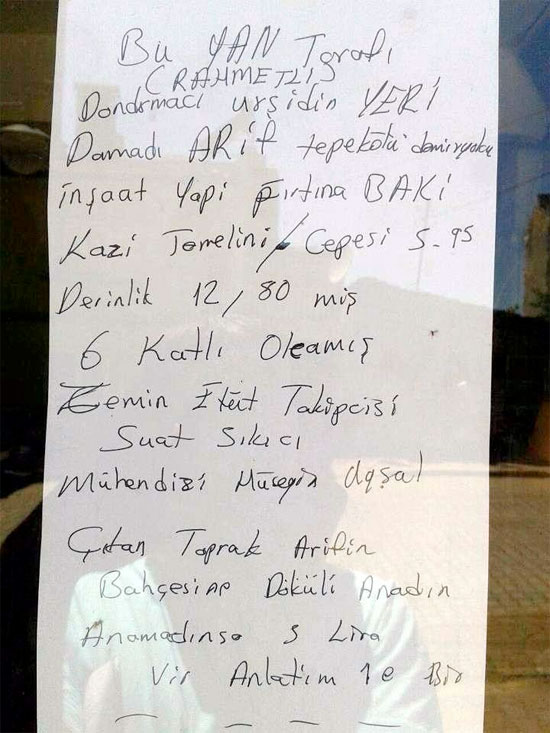 Bu YAN Tarafı
(RAHMETLİ)
Dondrmacı urşidin YERİ
Damadı ARİF tepekölü demiryolcu
inşaat Yapi Fırtına BAKİ
Kazi Temelini / Cepesi 5-95
Derinlik 12/80 miş
6 Katlı Olcamış
Zemin Etüt Takipcisi
Suat Sıkıcı
Mühendizi Hüseyin Uğşal
Çıkan Toprak Arifin
Bahçesine Döküli Anadın
Anamadınsa 5 Lira
Vir Anlatim 1e Bir